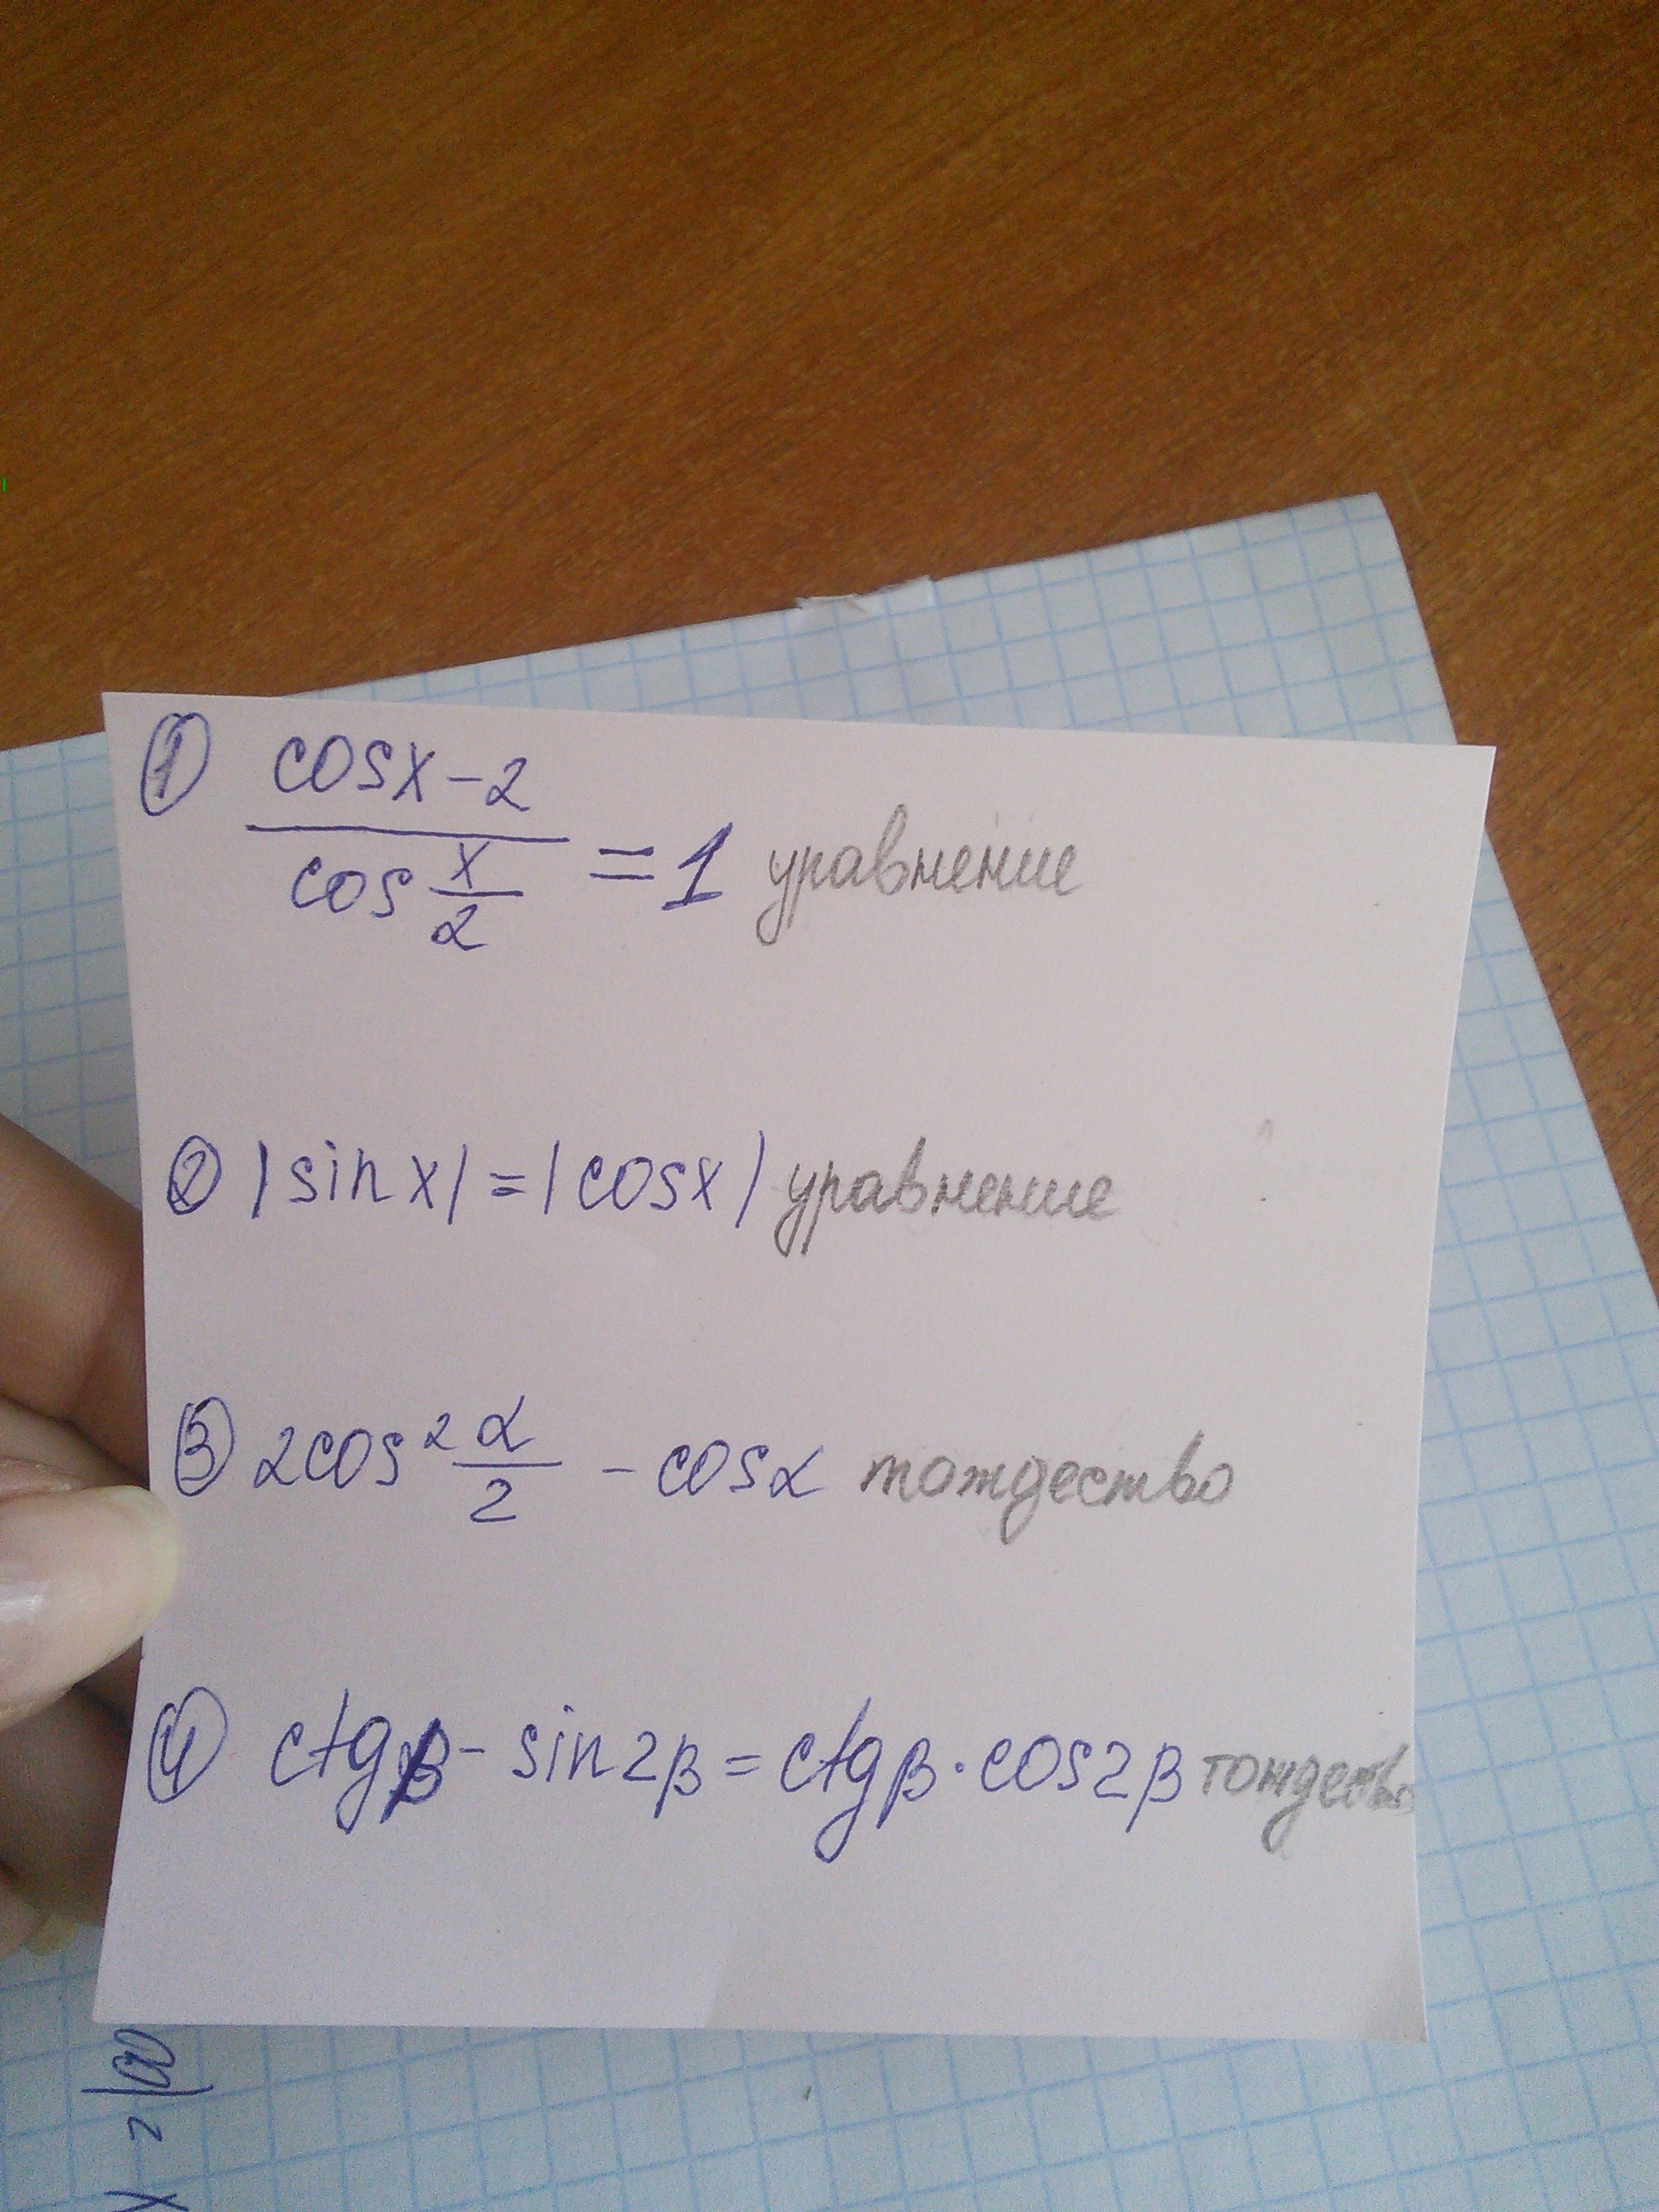 ① cosx-2
――― = 1 уравнение
cos x/2
② |sin x| = |cosx| уравнение
③ 2cos² α/2 - cosα тождество
④ ctgβ - sin2β = ctgβ · cos2β тождество